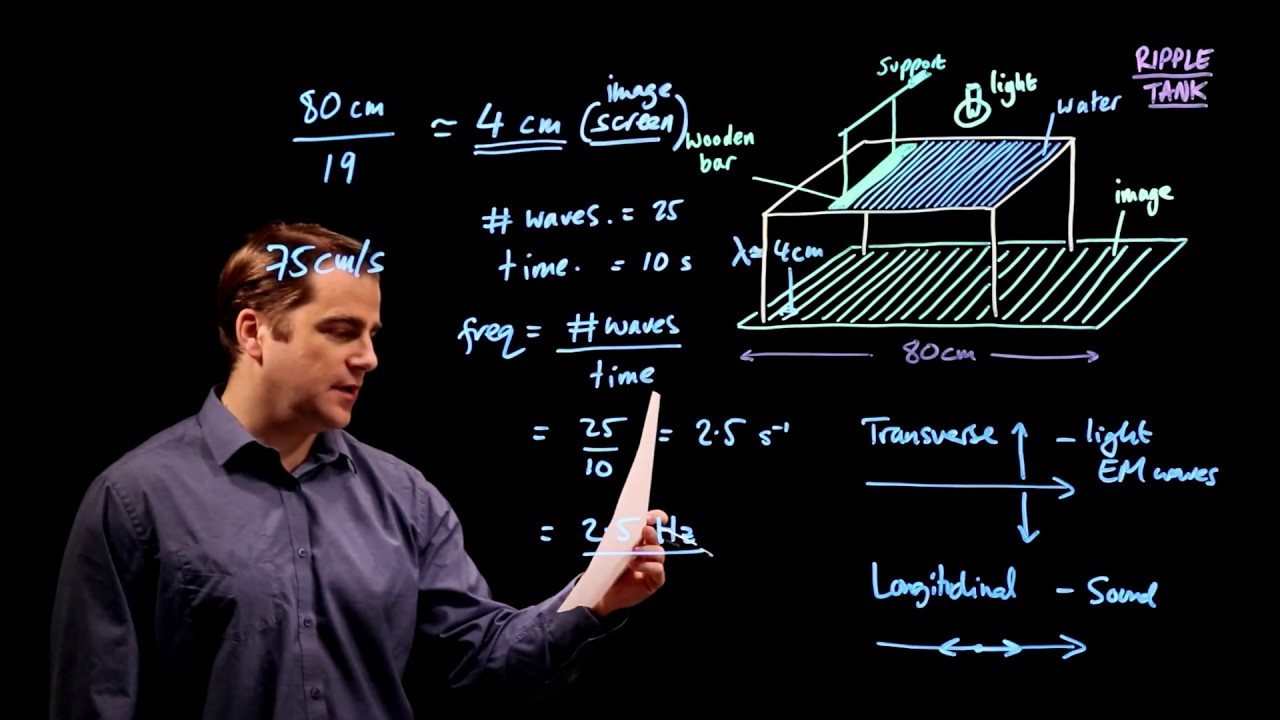 80 cm
19
≈ 4 cm (image screen)
# waves. = 25
time. = 10 s
75cm/s
freq = # waves
time
= 25
10
= 2.5 s⁻¹
= 2.5 Hz
RIPPLE
TANK
support
light
water
wooden
bar
image
λ≈4cm
80cm
Transverse – light
EM waves
Longitidinal – Sound